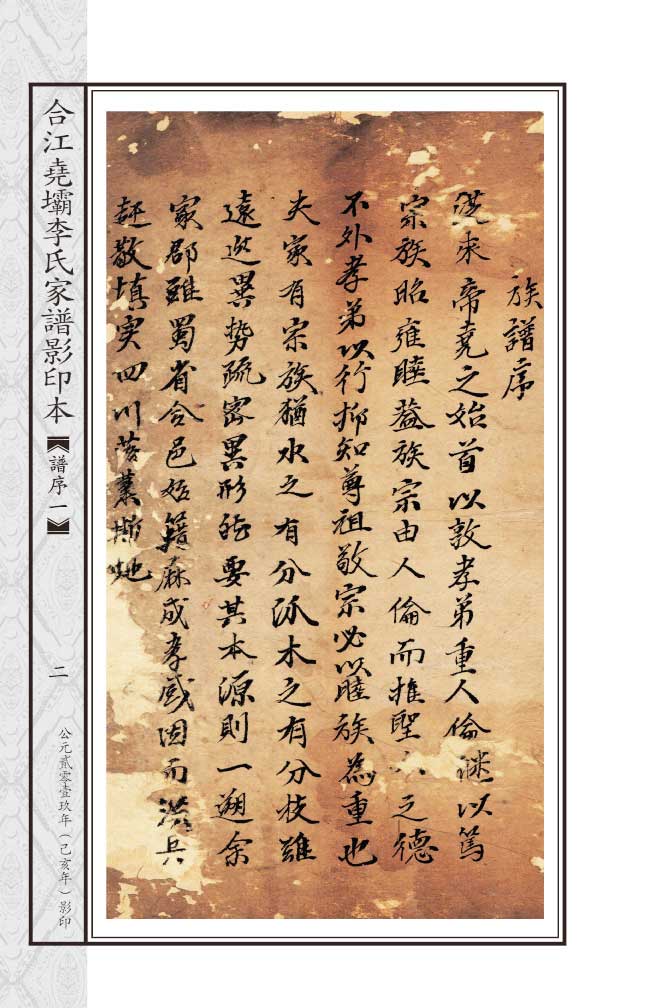 族譜序
從来帝堯之始首以敦孝弟重人倫 以篤
宗族昭雍睦葢族宗由人倫而推聖 之德
不外孝弟以行抑知尊祖敬宗必以睦族為重也
夫家有宗族猶水之有分派木之有分枝雖
遠近異势疏宻異形 要其本源則一 余
家郡雖蜀省合邑 籍麻成孝感因而洪兵
赶散填实四川落業斯地
合江堯壩李氏家譜影印本
譜序一
二
公元貳零壹玖年（己亥年）影印